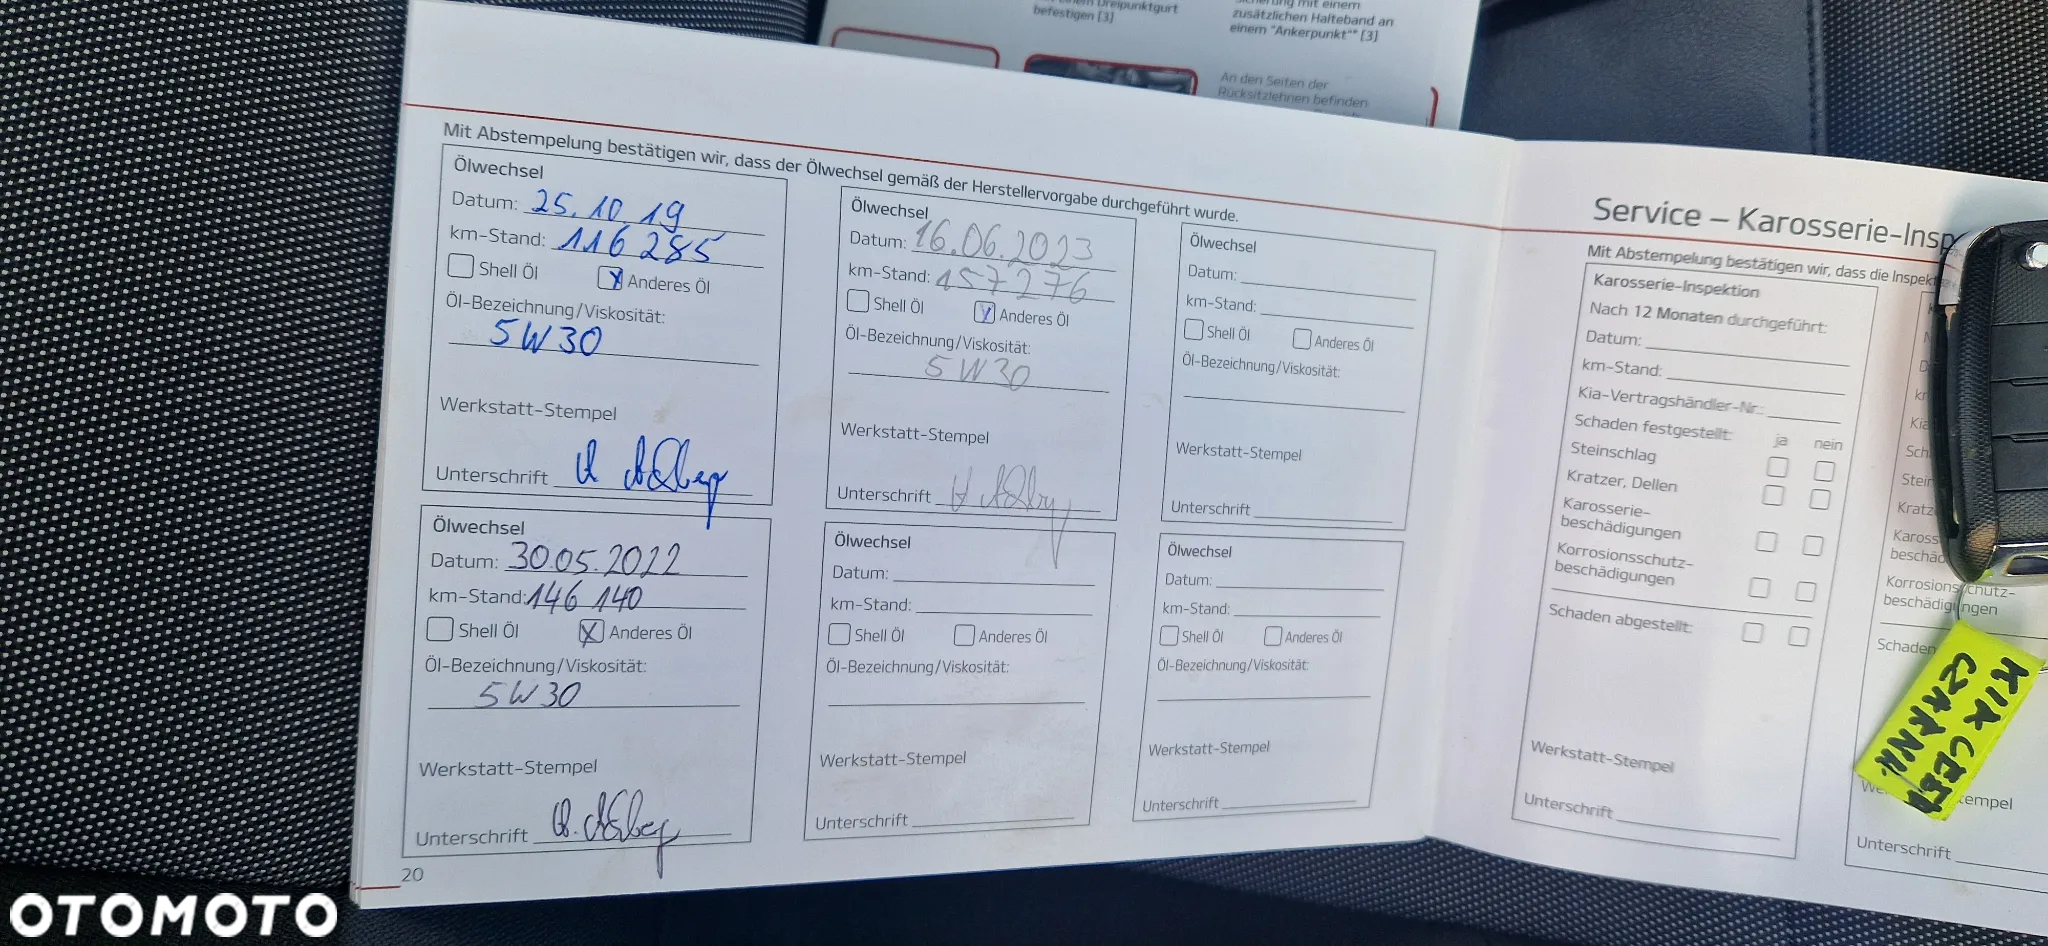 einem Dreipunktgurt
befestigen [3]
Sicherung mit einem
zusätzlichen Halteband an
einem "Ankerpunkt"* [3]
An den Seiten der
Rücksitzlehnen befinden
Mit Abstempelung bestätigen wir, dass der Ölwechsel gemäß der Herstellervorgabe durchgeführt wurde.
Ölwechsel
Datum: 25.10.19
km-Stand: 116 285
Shell Öl Anderes Öl
Öl-Bezeichnung/Viskosität:
5W30
Werkstatt-Stempel
Unterschrift
Ölwechsel
Datum: 30.05.2022
km-Stand: 146 140
Shell Öl Anderes Öl
Öl-Bezeichnung/Viskosität:
5W30
Werkstatt-Stempel
Unterschrift
20
Ölwechsel
Datum: 16.06.2023
km-Stand: 157 276
Shell Öl Anderes Öl
Öl-Bezeichnung/Viskosität:
5W30
Werkstatt-Stempel
Unterschrift
Ölwechsel
Datum:
km-Stand:
Shell Öl Anderes Öl
Öl-Bezeichnung/Viskosität:
Werkstatt-Stempel
Unterschrift
Ölwechsel
Datum:
km-Stand:
Shell Öl Anderes Öl
Öl-Bezeichnung/Viskosität:
Werkstatt-Stempel
Unterschrift
Ölwechsel
Datum:
km-Stand:
Shell Öl Anderes Öl
Öl-Bezeichnung/Viskosität:
Werkstatt-Stempel
Unterschrift
Service – Karosserie-Insp
Mit Abstempelung bestätigen wir, dass die Inspekt
Karosserie-Inspektion
Nach 12 Monaten durchgeführt:
Datum:
km-Stand:
Kia-Vertragshändler-Nr.:
Schaden festgestellt: ja nein
Steinschlag
Kratzer, Dellen
Karosserie-
beschädigungen
Korrosionsschutz-
beschädigungen
Schaden abgestellt:
Werkstatt-Stempel
Unterschrift
Kia
Sch
Stein
Kratz
Kaross
beschäd
Korrosionsschutz-
beschädigungen
Schaden
tempel
Unterschrift
KIA CEED
CZARNA
OTOMOTO